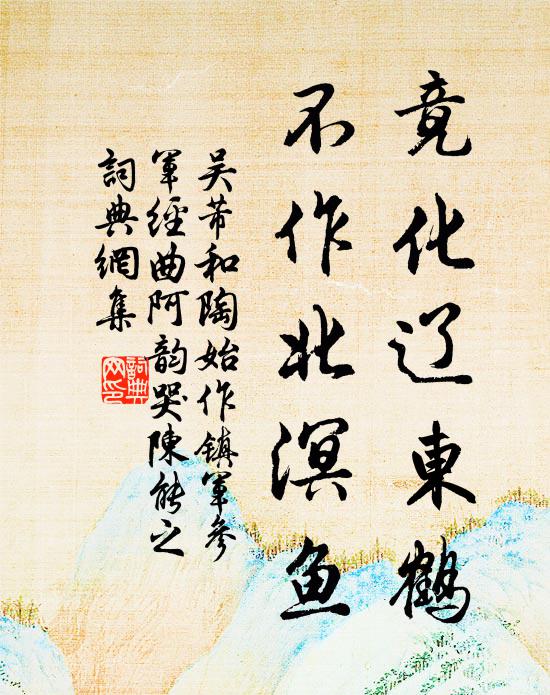 竟化辽東鶴
不作北溟鱼
吴芾和陶始作镇軍参
軍經曲阿韵哭陳能之
詞典網集
詞典
网印